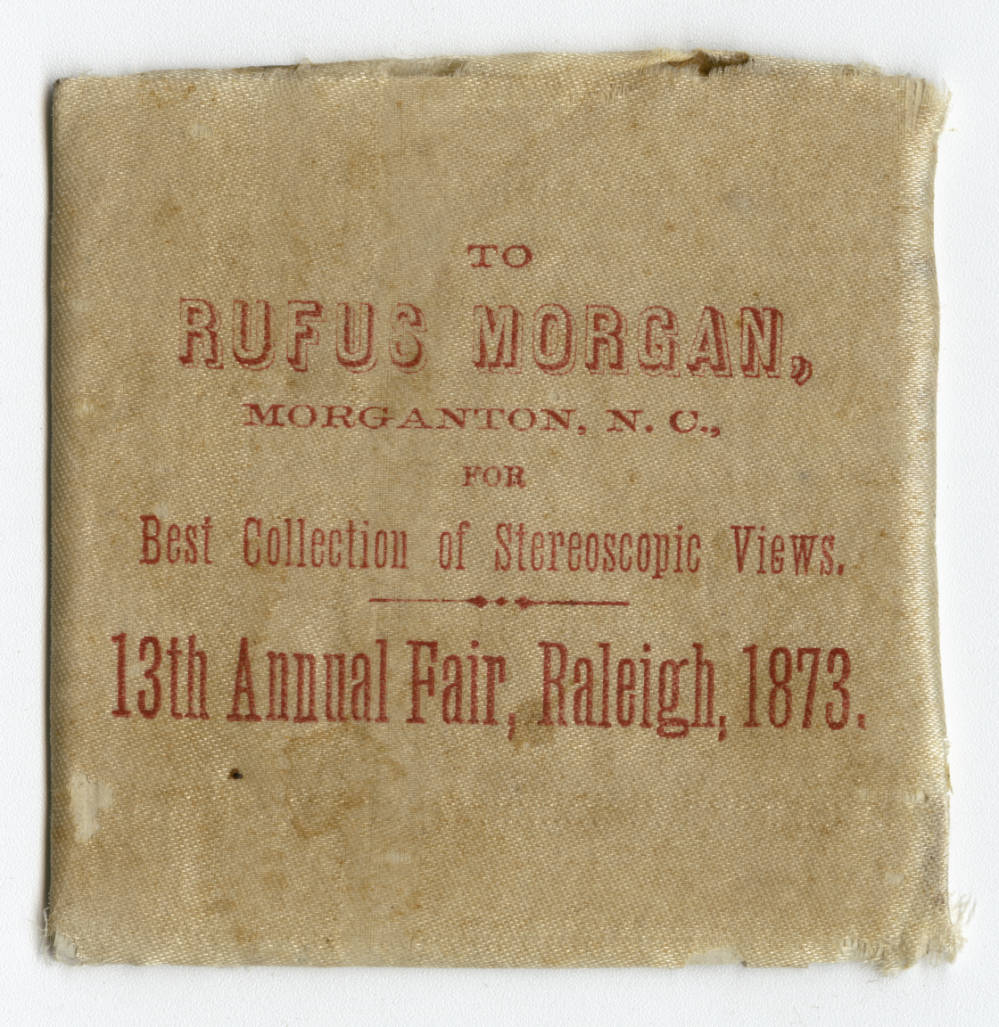 TO
RUFUS MORGAN,
MORGANTON, N. C.,
FOR
Best Collection of Stereoscopic Views.
13th Annual Fair, Raleigh, 1873.